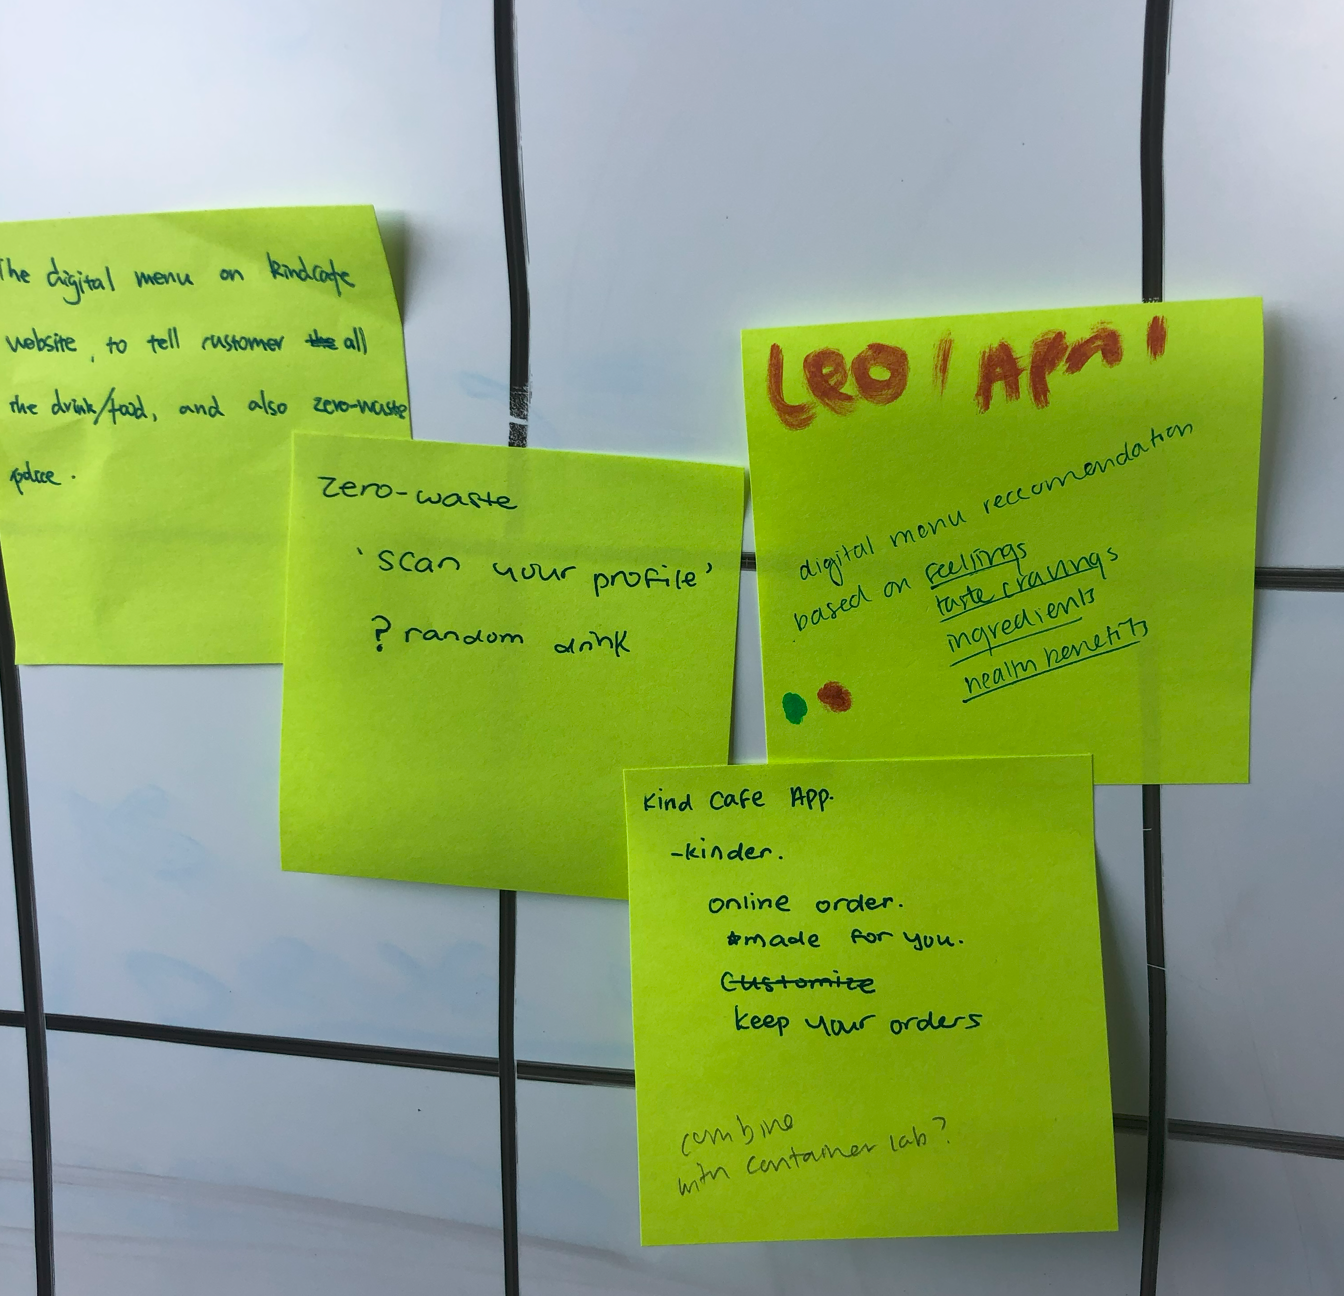 The digital menu on kindcafe
website, to tell customer the all
the drink/food, and also zero-waste
place.
zero-waste
'scan your profile'
? random drink
LEO / April
digital menu reccomendation
based on feelings
taste cravings
ingredients
health benefits
Kind Cafe App.
-kinder.
online order.
*made for you.
Customize
keep your orders
combine
with container lab?